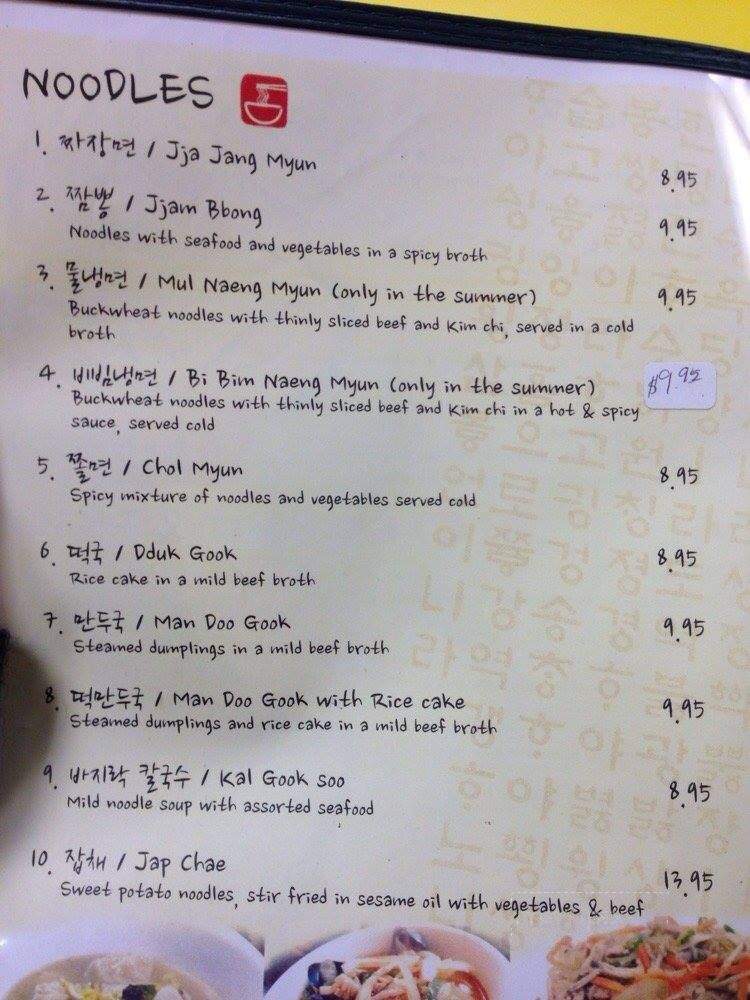 NOODLES
1. 짜장면 / Jja Jang Myun
8.95
2. 짬뽕 / Jjam Bbong
9.95
Noodles with seafood and vegetables in a spicy broth
3. 물냉면 / Mul Naeng Myun (only in the summer)
9.95
Buckwheat noodles with thinly sliced beef and Kim chi, served in a cold
broth
4. 비빔냉면 / Bi Bim Naeng Myun (only in the summer)
$9.95
Buckwheat noodles with thinly sliced beef and Kim chi in a hot & spicy
sauce, served cold
5. 쫄면 / Chol Myun
8.95
Spicy mixture of noodles and vegetables served cold
6. 떡국 / Dduk Gook
8.95
Rice cake in a mild beef broth
7. 만두국 / Man Doo Gook
9.95
Steamed dumplings in a mild beef broth
8. 떡만두국 / Man Doo Gook with Rice cake
9.95
Steamed dumplings and rice cake in a mild beef broth
9. 바지락 칼국수 / Kal Gook Soo
8.95
Mild noodle soup with assorted seafood
10. 잡채 / Jap Chae
13.95
Sweet potato noodles, stir fried in sesame oil with vegetables & beef